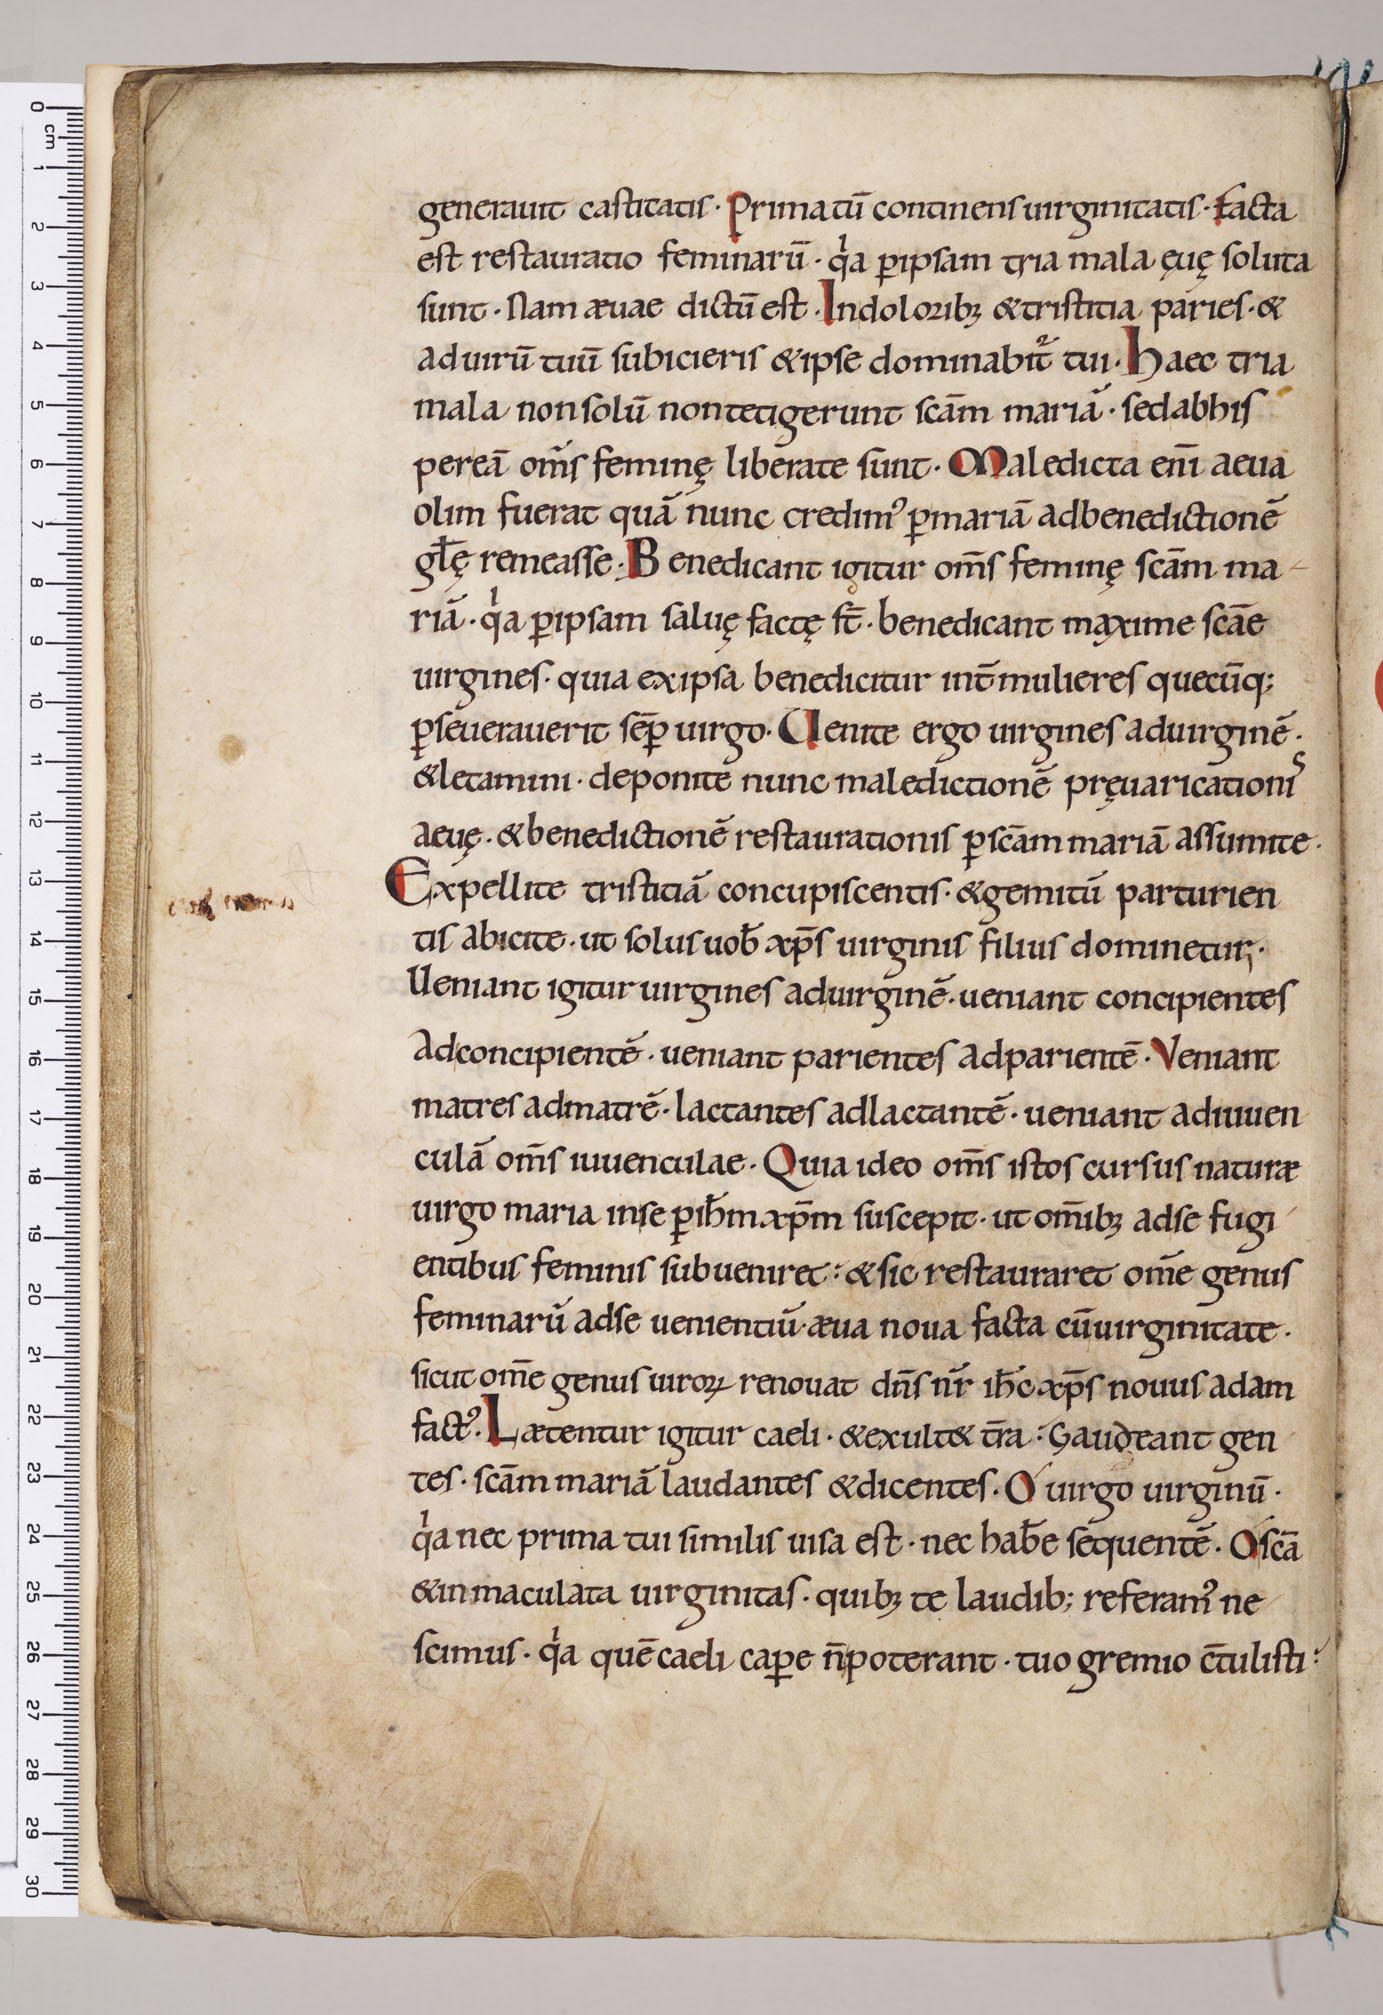 generauit castitatis· Primatū continens uirginitatis· facta
est restauratio feminarū· qͥa ꝑ ipsam tria mala ęuę soluta
sunt· Nam æuae dictū est· In dolorib; & tristitia paries· &
ad uirū tuū subicieris & ipse dominabit᷑ tui· Haec tria
mala non solū non tetigerunt scām mariā· sed ab his
per eā om̄s feminę liberate sunt· Maledicta enī aeua
olim fuerat quā nunc credimꝰ ꝑ mariā ad benedictionē
gl̄ę remeasse· Benedicant igitur om̄s feminę scām ma-
riā· qͥa ꝑ ipsam saluę factę st̄· benedicant maxime scāe
uirgines· quia ex ipsa benedicitur int̄ mulieres quecūq;
ꝑseuerauerit sēꝑ uirgo· Uenite ergo uirgines ad uirginē·
& letamini· deponite nunc maledictionē pręuaricationis
aeuę· & benedictionē restaurationis ꝑ scām mariā assumite·
Expellite tristitiā concupiscentis· & gemitū parturien
tis abicite· ut solus uob̄ xp̄s uirginis filius dominetur·
Ueniant igitur uirgines ad uirginē· ueniant concipientes
ad concipientē· ueniant parientes ad parientē· Veniant
matres ad matrē· lactantes ad lactantē· ueniant ad iuuen
culā om̄s iuuenculae· Quia ideo om̄s istos cursus naturæ
uirgo maria in se ꝑ ih̄m xp̄m suscepit· ut om̄ib; ad se fugi
entibus feminis subueniret: & sic restauraret om̄e genus
feminarū ad se uenientiū· æua noua facta cū uirginitate·
sicut om̄e genus uiroꝝ renouat dn̄s nr̄ ih̄c xp̄s nouus adam
factꝰ· Lætentur igitur caeli· & exult& t̄ra: Gaudeant gen
tes· scām mariā laudantes & dicentes· O uirgo uirginū·
qͥa nec prima tui similis uisa est· nec hab̄e sequentē· O scā
& inmaculata uirginitas· quib; te laudib; referamꝰ ne
scimus· qͥa quē caeli caꝑe n̄ poterant· tuo gremio c̄tulisti: